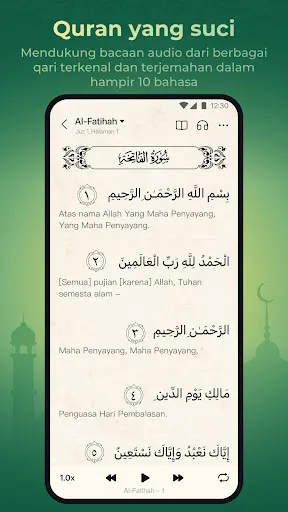 Quran yang suci
Mendukung bacaan audio dari berbagai
qari terkenal dan terjemahan dalam
hampir 10 bahasa
12:30
Al-Fatihah
Juz 1, Halaman 1
سُورَةُ الفَاتِحَة
بِسْمِ اللَّهِ الرَّحْمَـٰنِ الرَّحِيمِ ١
Atas nama Allah Yang Maha Penyayang,
Yang Maha Penyayang.
الْحَمْدُ لِلَّهِ رَبِّ الْعَالَمِينَ ٢
[Semua] pujian [karena] Allah, Tuhan
semesta alam –
الرَّحْمَـٰنِ الرَّحِيمِ ٣
Maha Penyayang, Maha Penyayang,
مَالِكِ يَوْمِ الدِّينِ ٤
Penguasa Hari Pembalasan.
إِيَّاكَ نَعْبُدُ وَإِيَّاكَ نَسْتَعِينُ ٥
1.0x
Al-Fatihah - 1